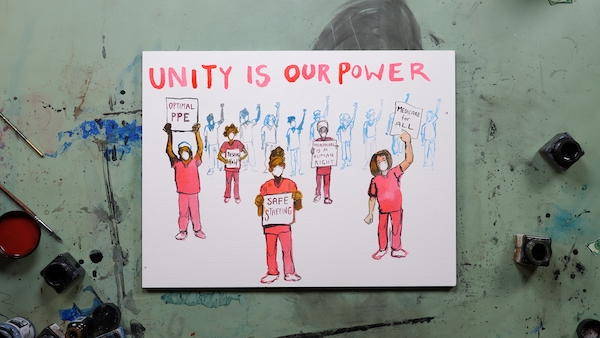 UNITY IS OUR POWER
OPTIMAL
PPE
MEDICARE
for
ALL
IS A
HUMAN
RIGHT
SAFE
STAFFING